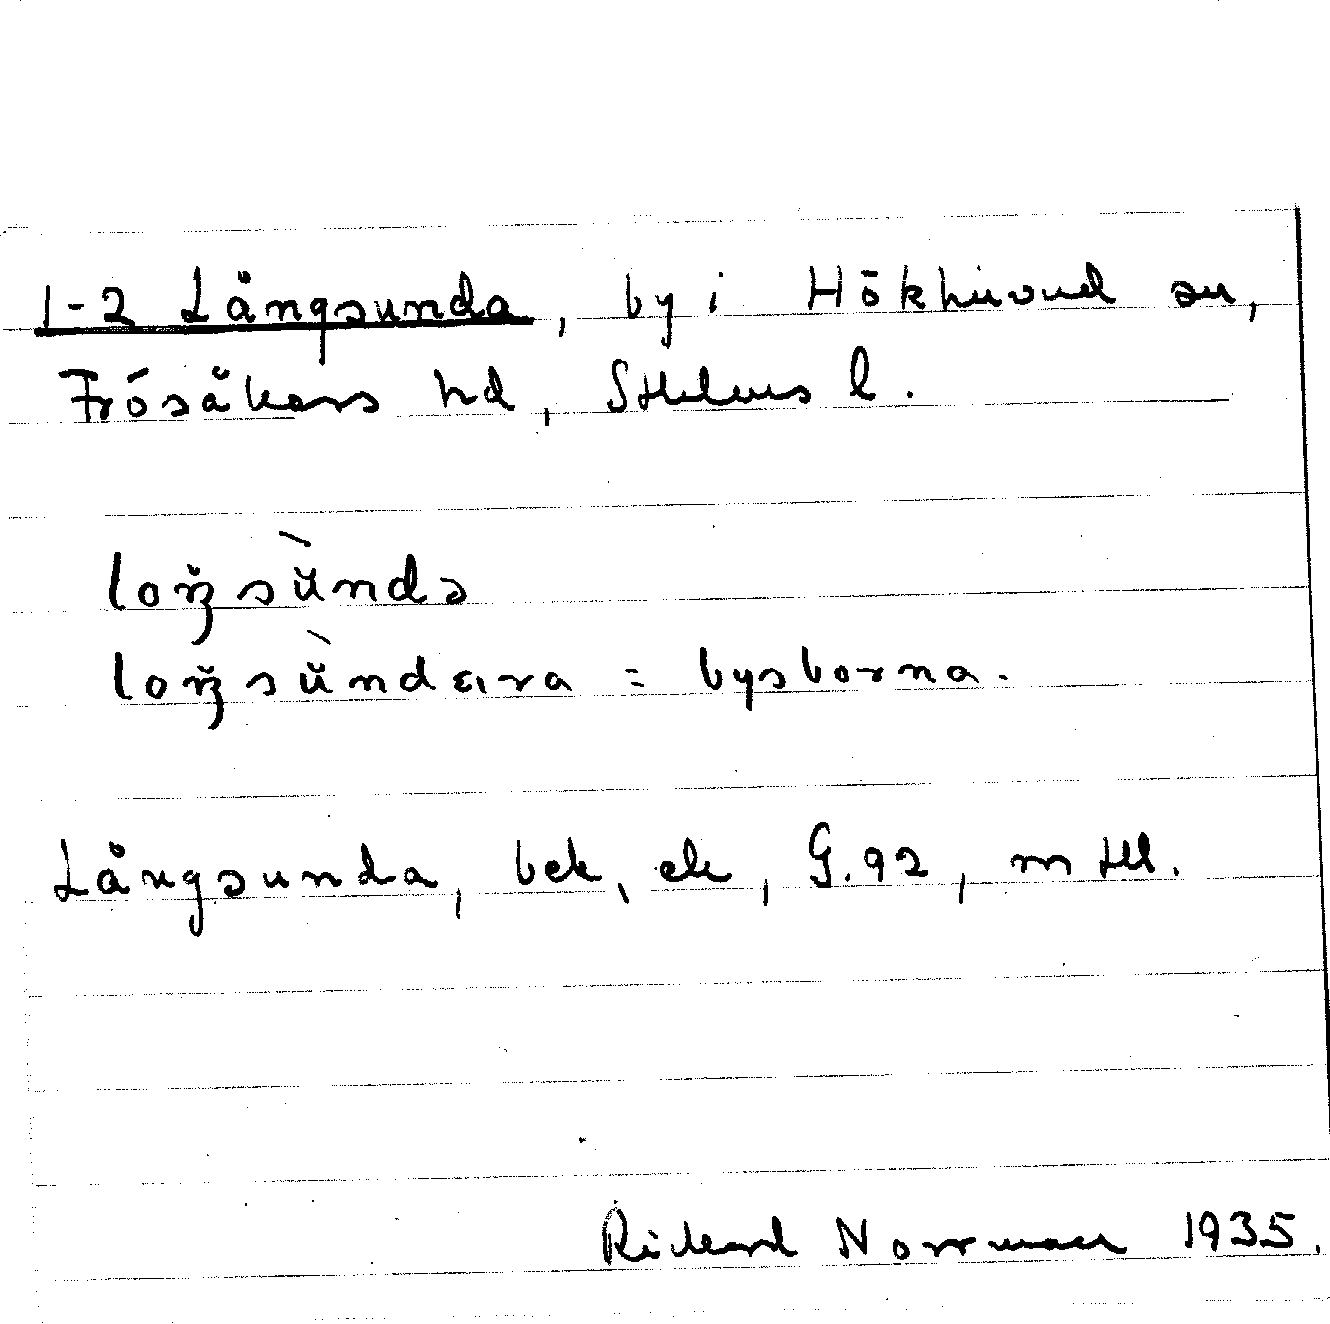 1-2 Långsunda, by i Hökhuvud sn,
Frösåkers hd, Sthlms l.
loŋsùndə
loŋsùndεıra = bysborna.
Långsunda, bek, ek, G.92, mtl.
Rickard Norrman 1935.